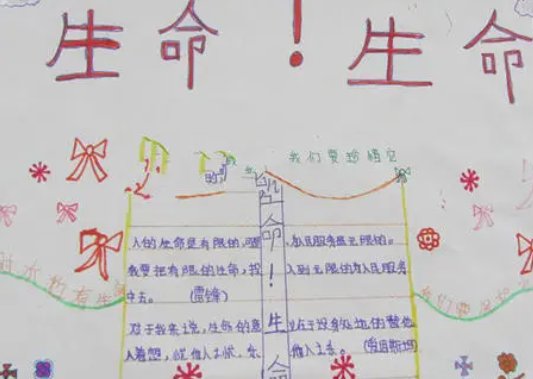 生命！生命
我们要珍惜它
命！生命
人的生命是有限的，
，为人民服务是无限的。
我要把有限的生命，投
入到无限的为人民服务
中去。（雷锋）
对于我来说，生命的意
义在于设身处地的替他
人着想，忧他人之忧，乐
他人之乐。（爱因斯坦）